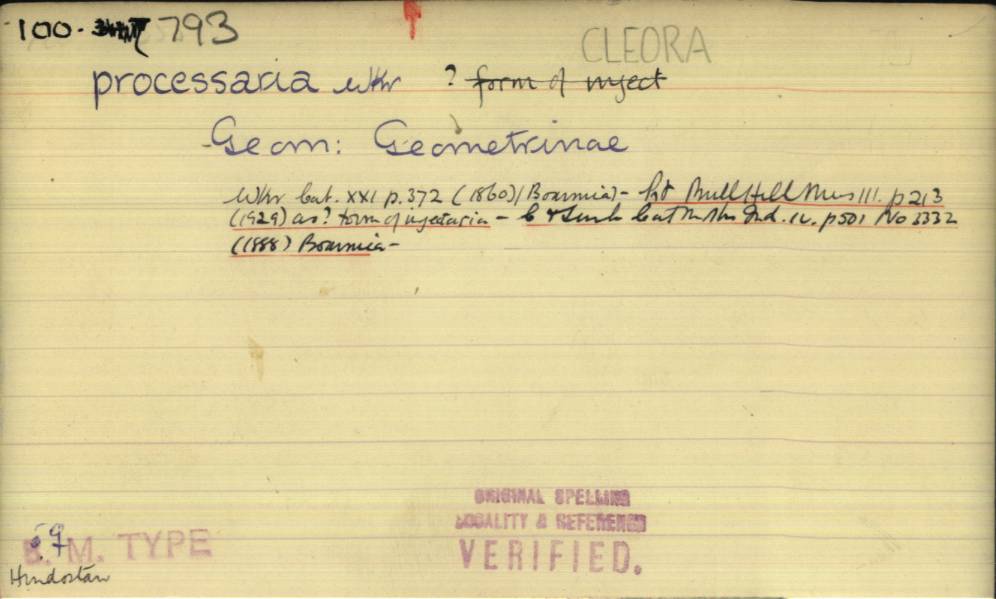 100. 793
CLEORA
processaria Wkr ? form of inject
Geom: Geometrinae
Wkr Cat. XXI p.372 (1860) (Boarmia) - Prt Bull Hill Mus III. p 213
(1929) as? form of injectaria - C & Swinh Cat M Ind. IV. p 501 No 3332
(1888) Boarmia -
ORIGINAL SPELLING
LOCALITY & REFERENCE
VERIFIED.
B. M. TYPE
♀
Hindostan